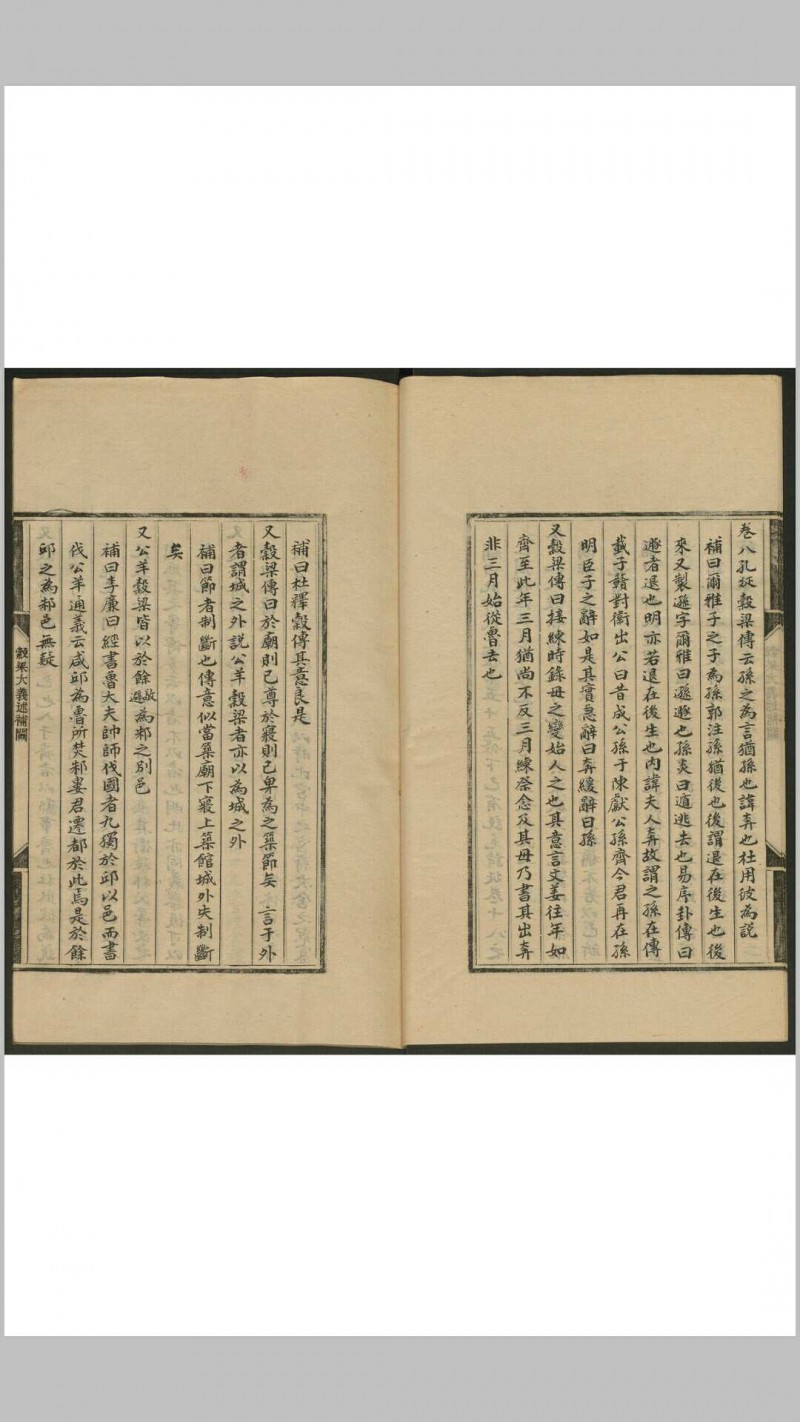 卷八孔疏穀梁傳云孫之為言猶孫也諱奔也杜用彼為說
補曰爾雅子之子為孫郭注孫猶後也後謂退在後生也後
來又製遜字爾雅曰遜遯也孫炎曰遁逃去也易序卦傳曰
遯者退也明亦若退在後生也內諱夫人奔故謂之孫在傳
載子贛對衛出公曰昔成公孫于陳獻公孫齊今君再在孫
明臣子之辭如是其實急辭曰奔緩辭曰孫
又穀梁傳曰接練時錄母之變始人之也其意言文姜往年如
齊至此年三月猶尚不反三月練祭念及其母乃書其出奔
非三月始從魯去也
補曰杜釋穀傳其意良是
又穀梁傳曰於廟則已尊於寢則已卑為之築節矣 言于外
者謂城之外說公羊穀梁者亦以為城之外
補曰節者制斷也傳意似當築廟下寢上築館城外失制斷
矣
又公羊穀梁皆以於餘邱為邾之別邑
補曰李廉曰經書魯大夫帥師伐國者九獨於邱以邑而書
伐公羊通義云咸邱為魯所焚邾婁君遷都於此焉是於餘
邱之為邾邑無疑
穀梁大義述補闕